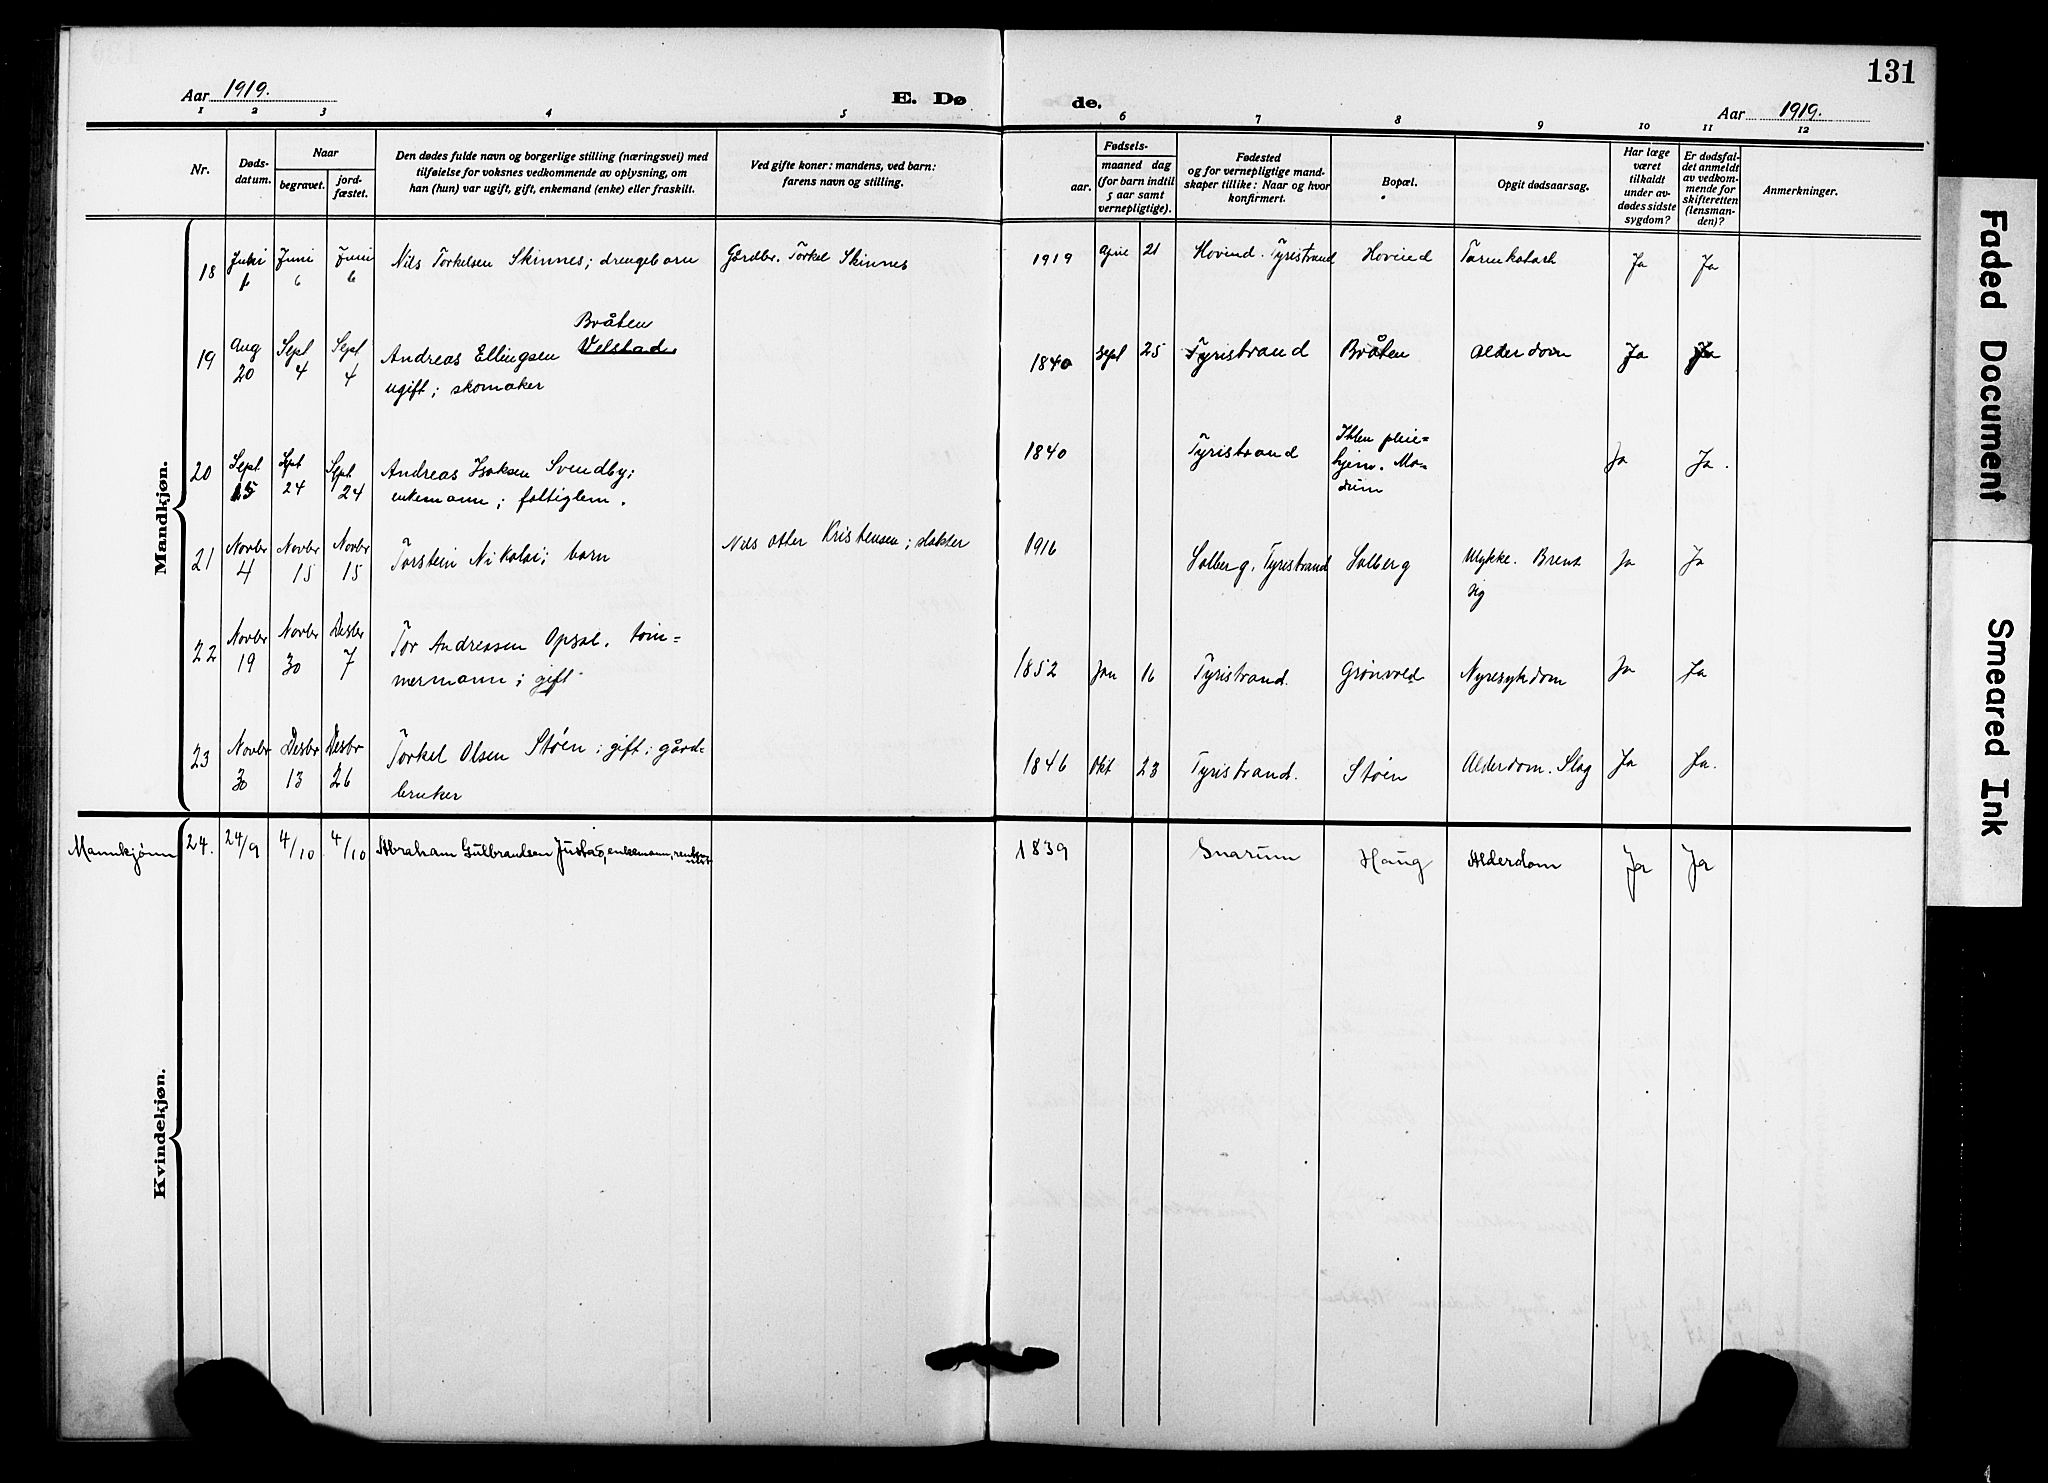 131
Aar 1919.
E. Dø de.
Aar 1919.
1 2 3 4 5 6 7 8 9 10 11 12
Nr.
Døds-
datum.
Naar
begravet.
jord-
fæstet.
Den dødes fulde navn og borgerlige stilling (næringsvei) med
tilføielse for voksnes vedkommende av oplysning, om
han (hun) var ugift, gift, enkemand (enke) eller fraskilt.
Ved gifte koner: mandens, ved barn:
farens navn og stilling.
Fødsels-
aar.
maaned dag
(for barn indtil
5 aar samt
vernepligtige).
Fødested
og for vernepligtige mand-
skaper tillike: Naar og hvor
konfirmert.
Bopæl.
Opgit dødsaarsag.
Har læge
været
tilkaldt
under av-
dødes sidste
sygdom?
Er dødsfal-
det anmeldt
av vedkom-
mende for
skifteretten
(lensman-
den)?
Anmerkninger.
Mandkjøn.
18 Juni 6 Juni 6 Juni 6 Nils Torkelsen Skinnes; drengebarn Gårdbr. Torkel Skinnes 1919 April 21 Hovind. Tyristrand Hovind Tarmkatarh Ja Ja
Bråten
19 Aug 20 Sept 4 Sept 4 Andreas Ellingsen Velstad 1840 Sept 25 Tyristrand Bråten Alderdom Ja Ja
ugift; skomaker
20 Sept 15 Sept 24 Sept 24 Andreas Isaksen Svendby; 1840 Tyristrand Iblen pleie=
hjem. Mo=
dum Ja Ja.
enkemann; fattiglem.
21 Novbr 4 Novbr 15 Novbr 15 Torstein Nikolai; barn Nils Otter Kristensen; slakter 1916 Solberg, Tyristrand Solberg Ulykke. Brent
sig Ja Ja
22 Novbr 19 Novbr 30 Desbr 7 Tor Andreasen Opsal. töm=
mermann; gift 1852 Jan 16 Tyristrand. Grönvold Nyresykdom Ja Ja
23 Novbr 30 Desbr 13 Desbr 26 Torkel Olsen Stöen; gift; gård=
bruker 1846 Okt 23 Tyristrand. Stöen Alderdom. Slag Ja Ja.
Mannkjønn 24. 24/9 4/10 4/10 Abraham Gulbrandsen Justad, enkemann, 1839 Snarum Haug Alderdom Ja Ja
Kvindekjøn.
Faded Document
Smeared Ink